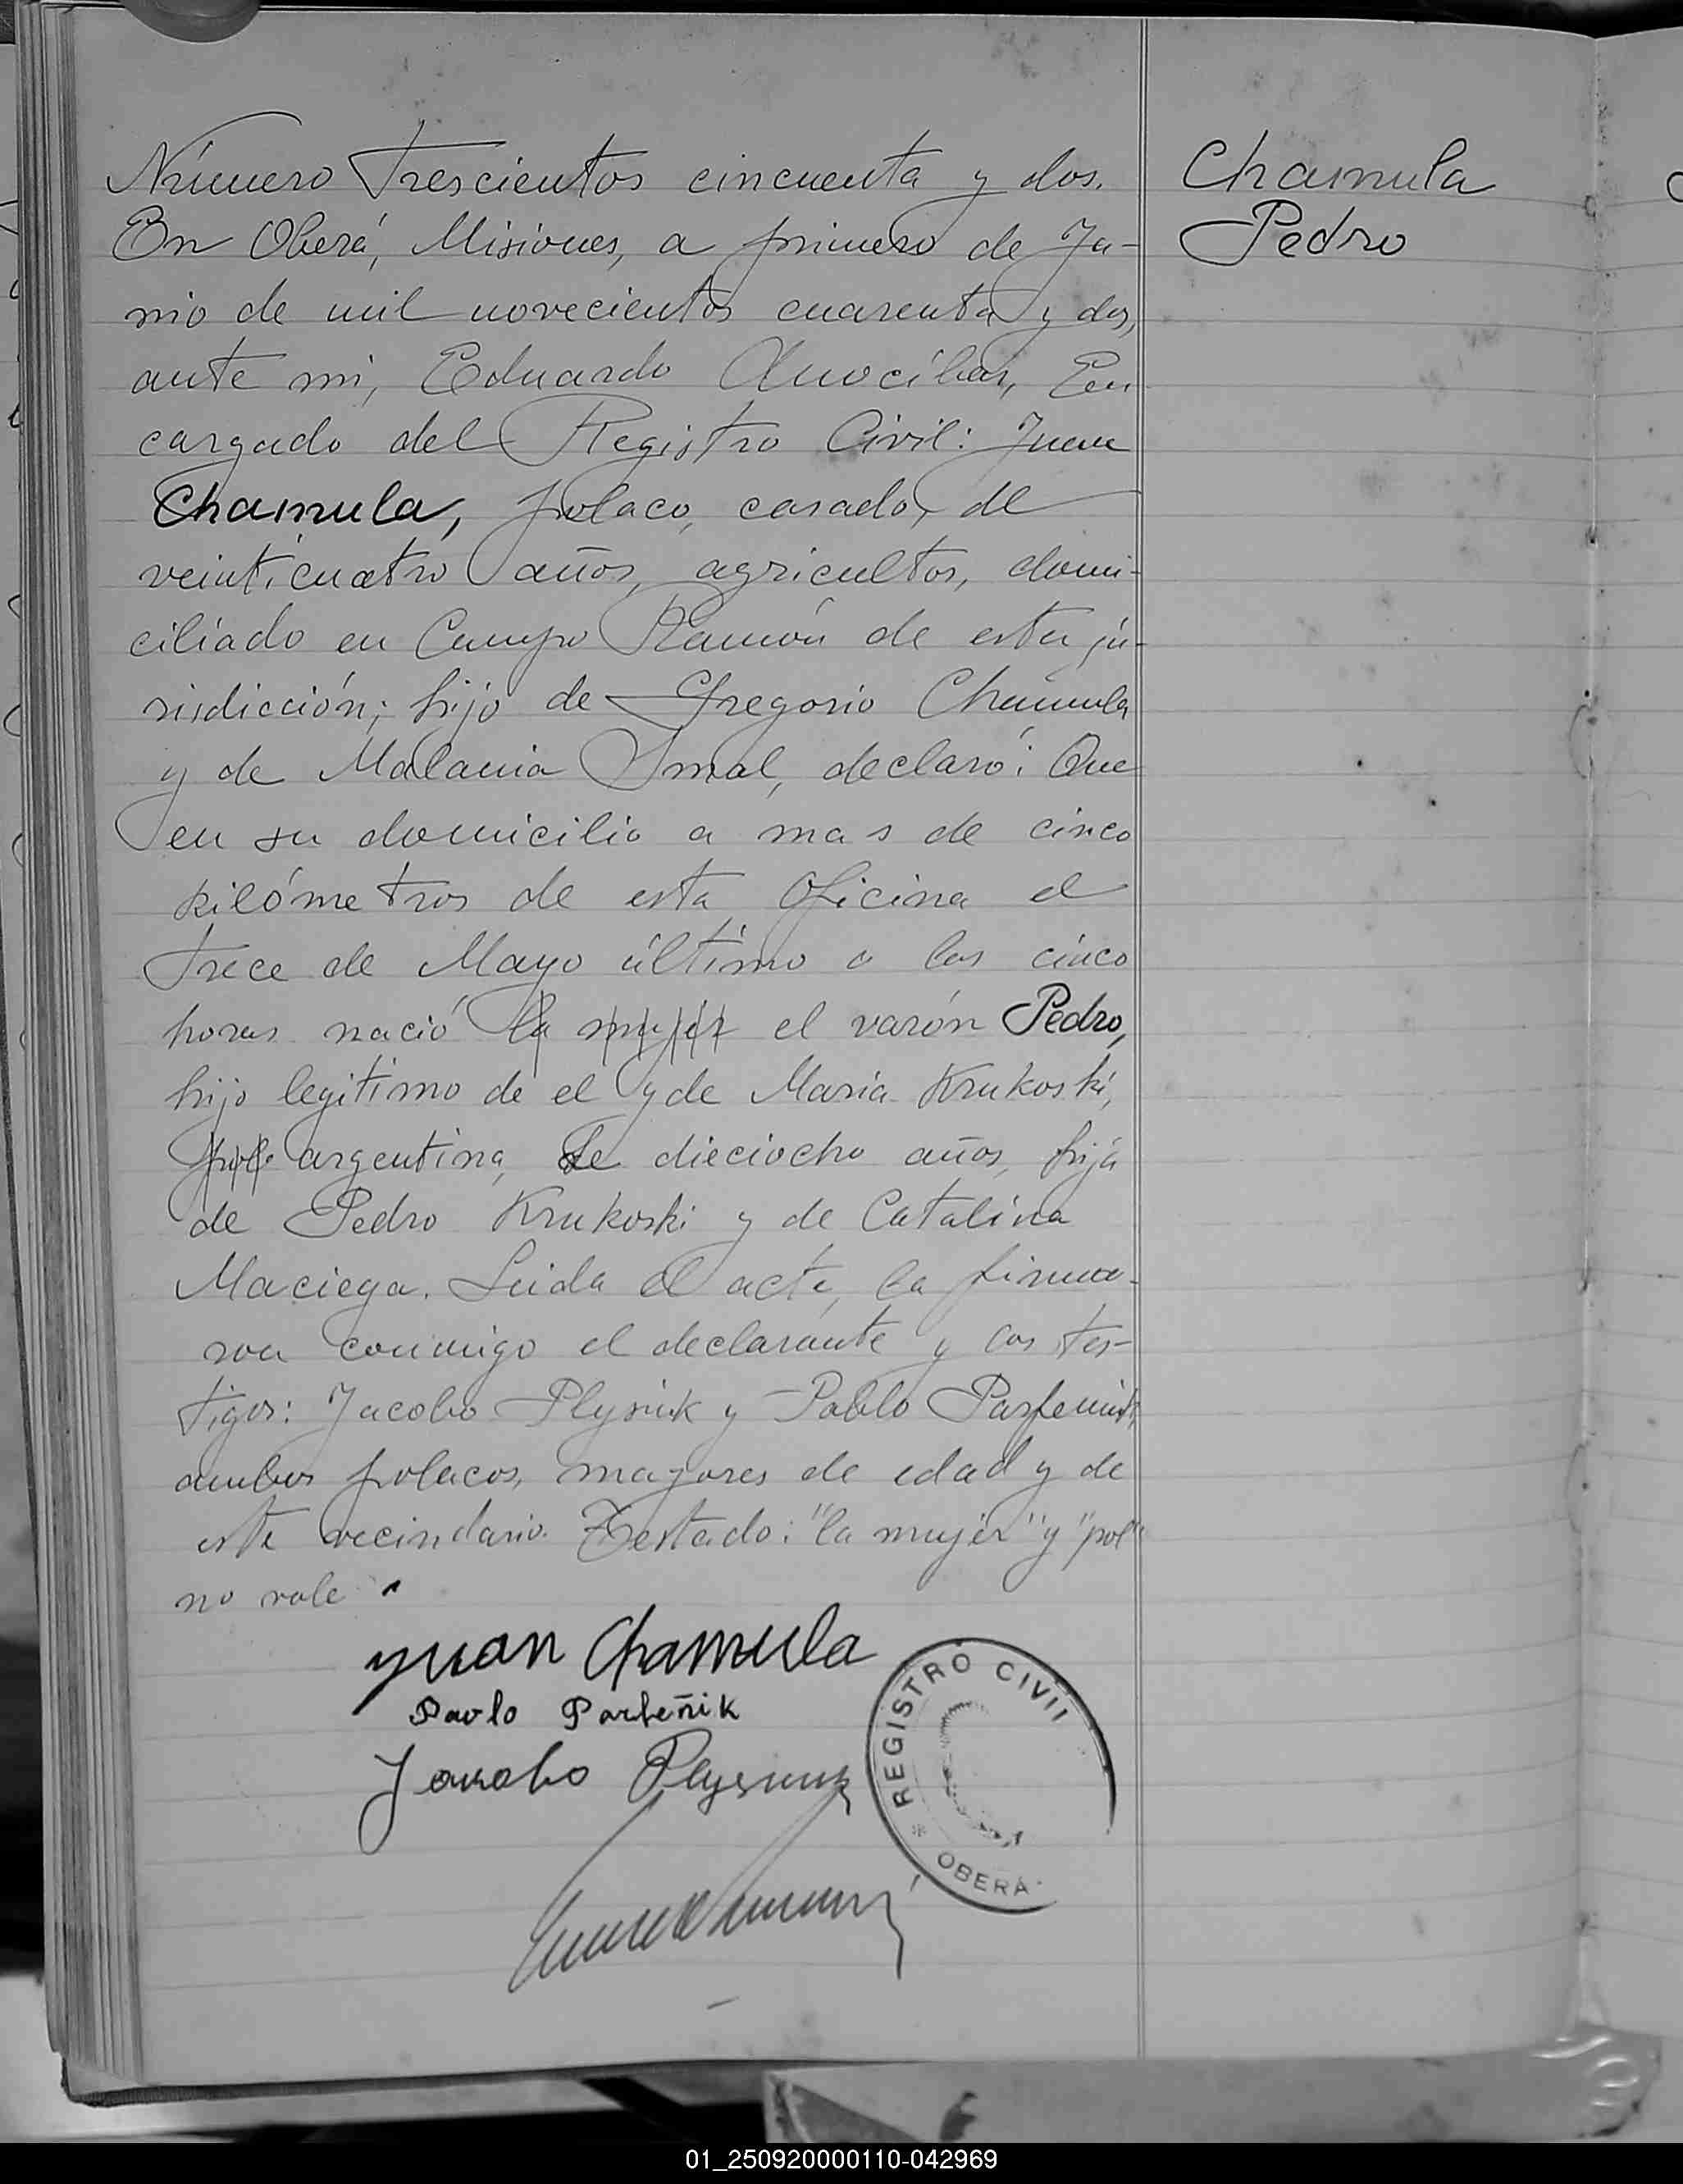 Número Trescientos cincuenta y dos.
En Oberá, Misiones, a primero de Ju-
nio de mil novecientos cuarenta y dos,
ante mi, Eduardo Anocíbar, En
cargado del Registro Civil: Juan
Chamula, polaco, casado, de
veinticuatro años, agricultor, domi-
ciliado en Campo Ramón de esta ju-
risdicción; hijo de Gregorio Chamula
y de Malania Smal, declaró: Que
en su domicilio a mas de cinco
kilómetros de esta Oficina el
trece de Mayo último a las cinco
horas nació la mujer el varón Pedro,
hijo legitimo de el y de Maria Krukoski,
pol. argentina, de dieciocho años, hija
de Pedro Krukoski y de Catalina
Maciega. Leida el acta, la firma-
ron conmigo el declarante y los tes-
tigos: Jacobo Plysiuk y Pablo Parfeniuk,
ambos polacos, mayores de edad y de
este vecindario. Testado: "la mujer" y "pol"
no vale.
Juan Chamula
Pavlo Parfeñik
Jakobo
REGISTRO CIVIL
* OBERÁ
Chamula
Pedro
01_250920000110-042969